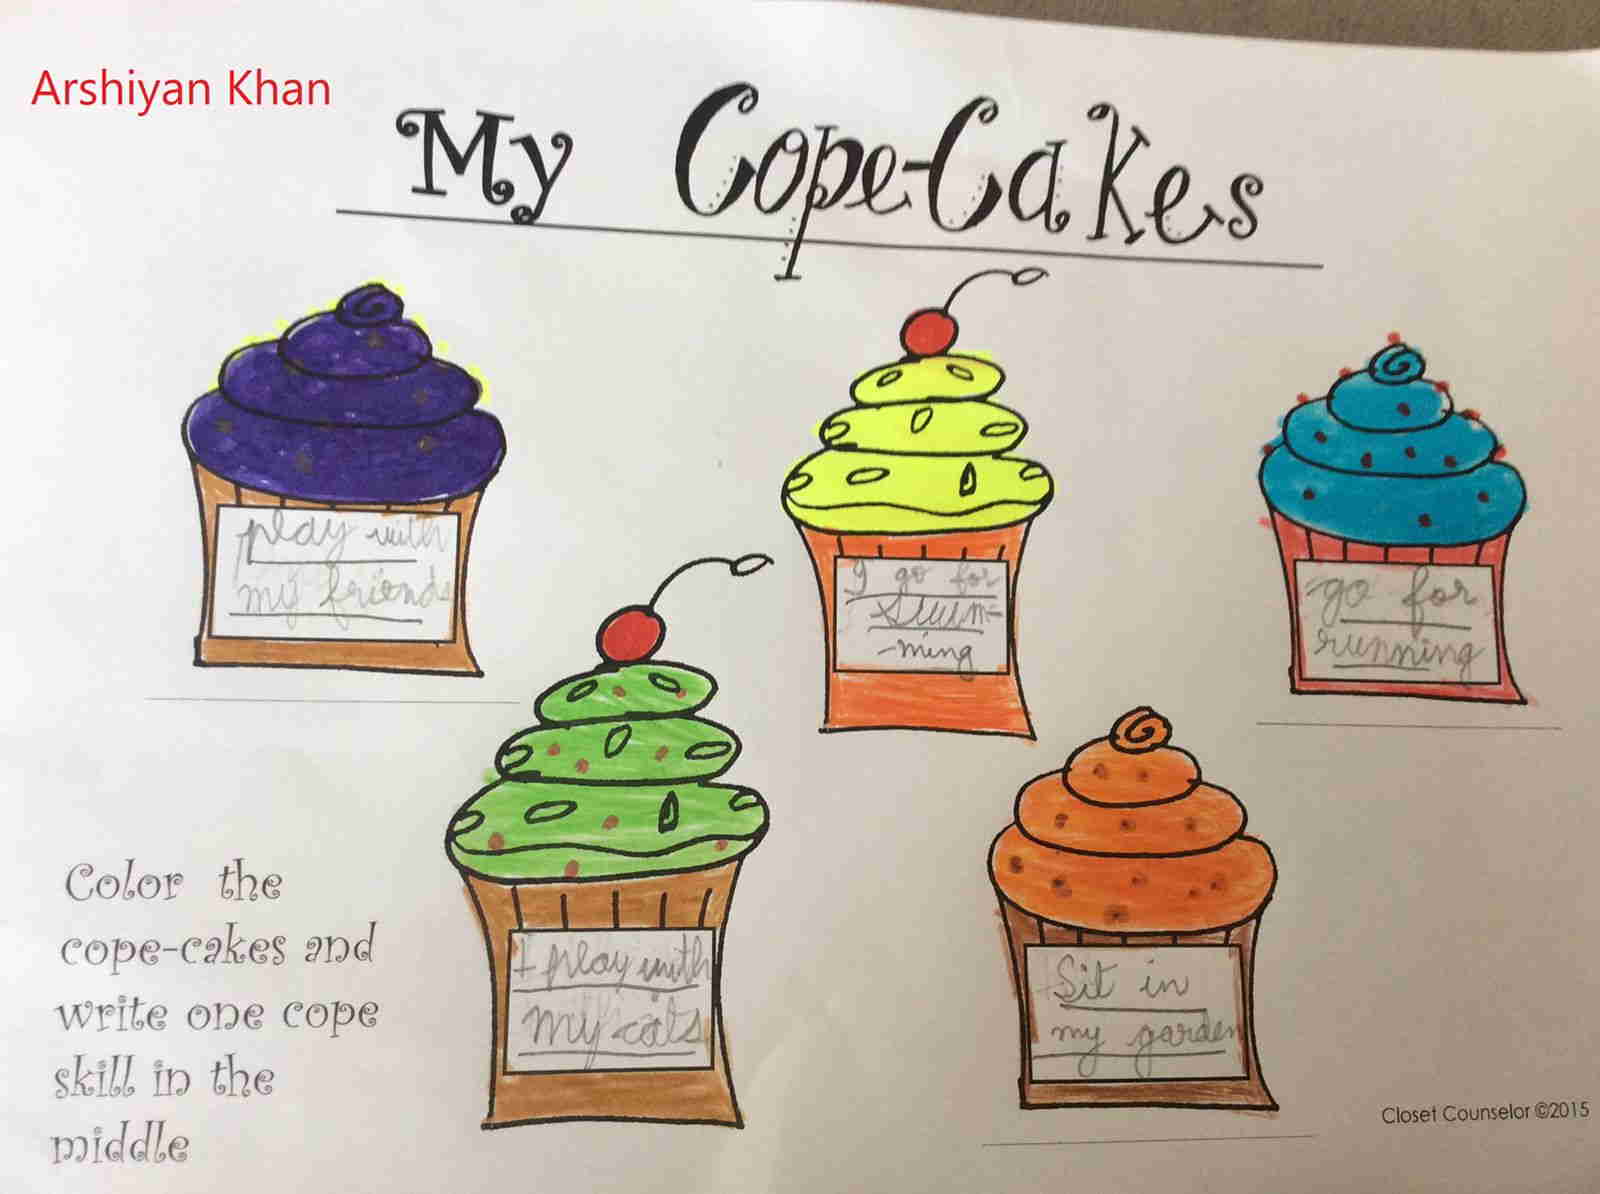 Arshiyan Khan
My Cope-Cakes
play with
my friends
I go for
Swim-
-ming
go for
running
I play with
my cats
Sit in
my garden
Color the
cope-cakes and
write one cope
skill in the
middle
Closet Counselor ©2015